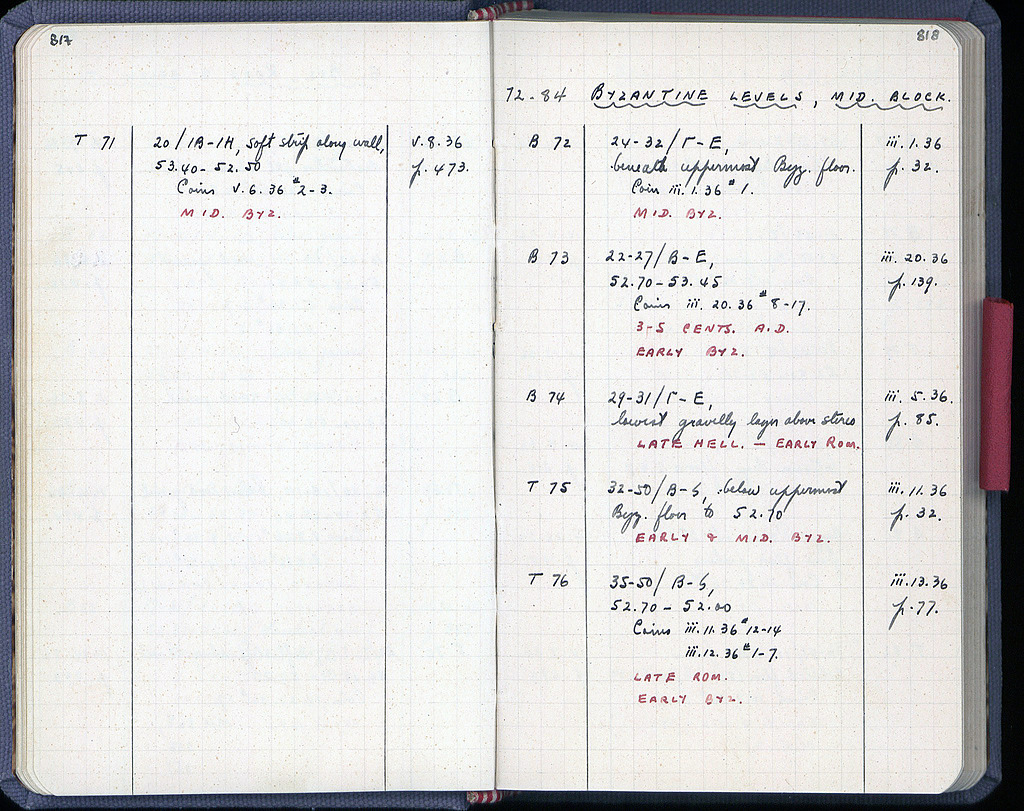 817
T 71 20/1B-1H, soft strip along wall, V.8.36
53.40-52.50 p.473.
Coins V.6.36 #2-3.
MID. BYZ.
818
72-84 BYZANTINE LEVELS, MID. BLOCK.
B 72 24-32/Γ-E, iii.1.36
beneath uppermost Byz. floor. p.32.
Coin iii.1.36 #1.
MID. BYZ.
B 73 22-27/B-E, iii.20.36
52.70-53.45 p.139.
Coins iii.20.36 #8-17.
3-5 CENTS. A.D.
EARLY BYZ.
B 74 29-31/Γ-E, iii.5.36.
lowest gravelly layer above stereo p.85.
LATE HELL. — EARLY ROM.
T 75 32-50/B-S, below uppermost iii.11.36
Byz. floor to 52.70 p.32.
EARLY & MID. BYZ.
T 76 35-50/B-S, iii.13.36
52.70-52.00 p.77.
Coins iii.11.36 #12-14
iii.12.36 #1-7.
LATE ROM.
EARLY BYZ.